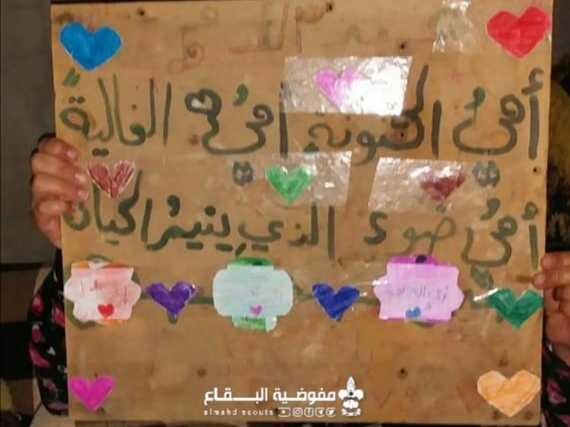 أميُ الحنونة أميُ الغالية
أميُ ضوء الذي ينيرُ الحياة
مفوضية البـقـاع
almahd scouts